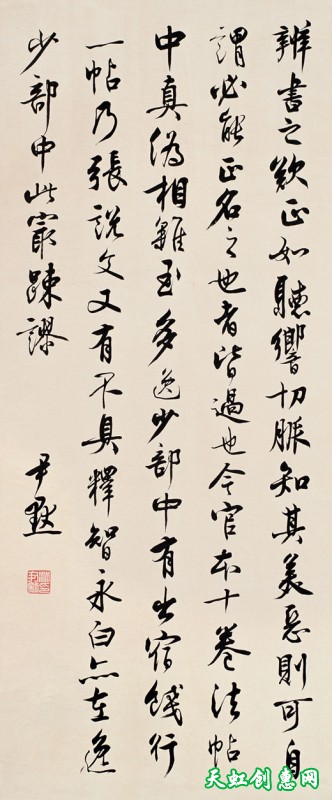 辨書之難正如聽響切脈知其美惡則可自
謂必能正名之也者皆過也今官本十卷法帖
中真偽相雜至多逸少部中有出宿餞行
一帖乃張說文又有不具釋智永白亦在逸
少部中此最疎謬
尹默
天虹创惠网